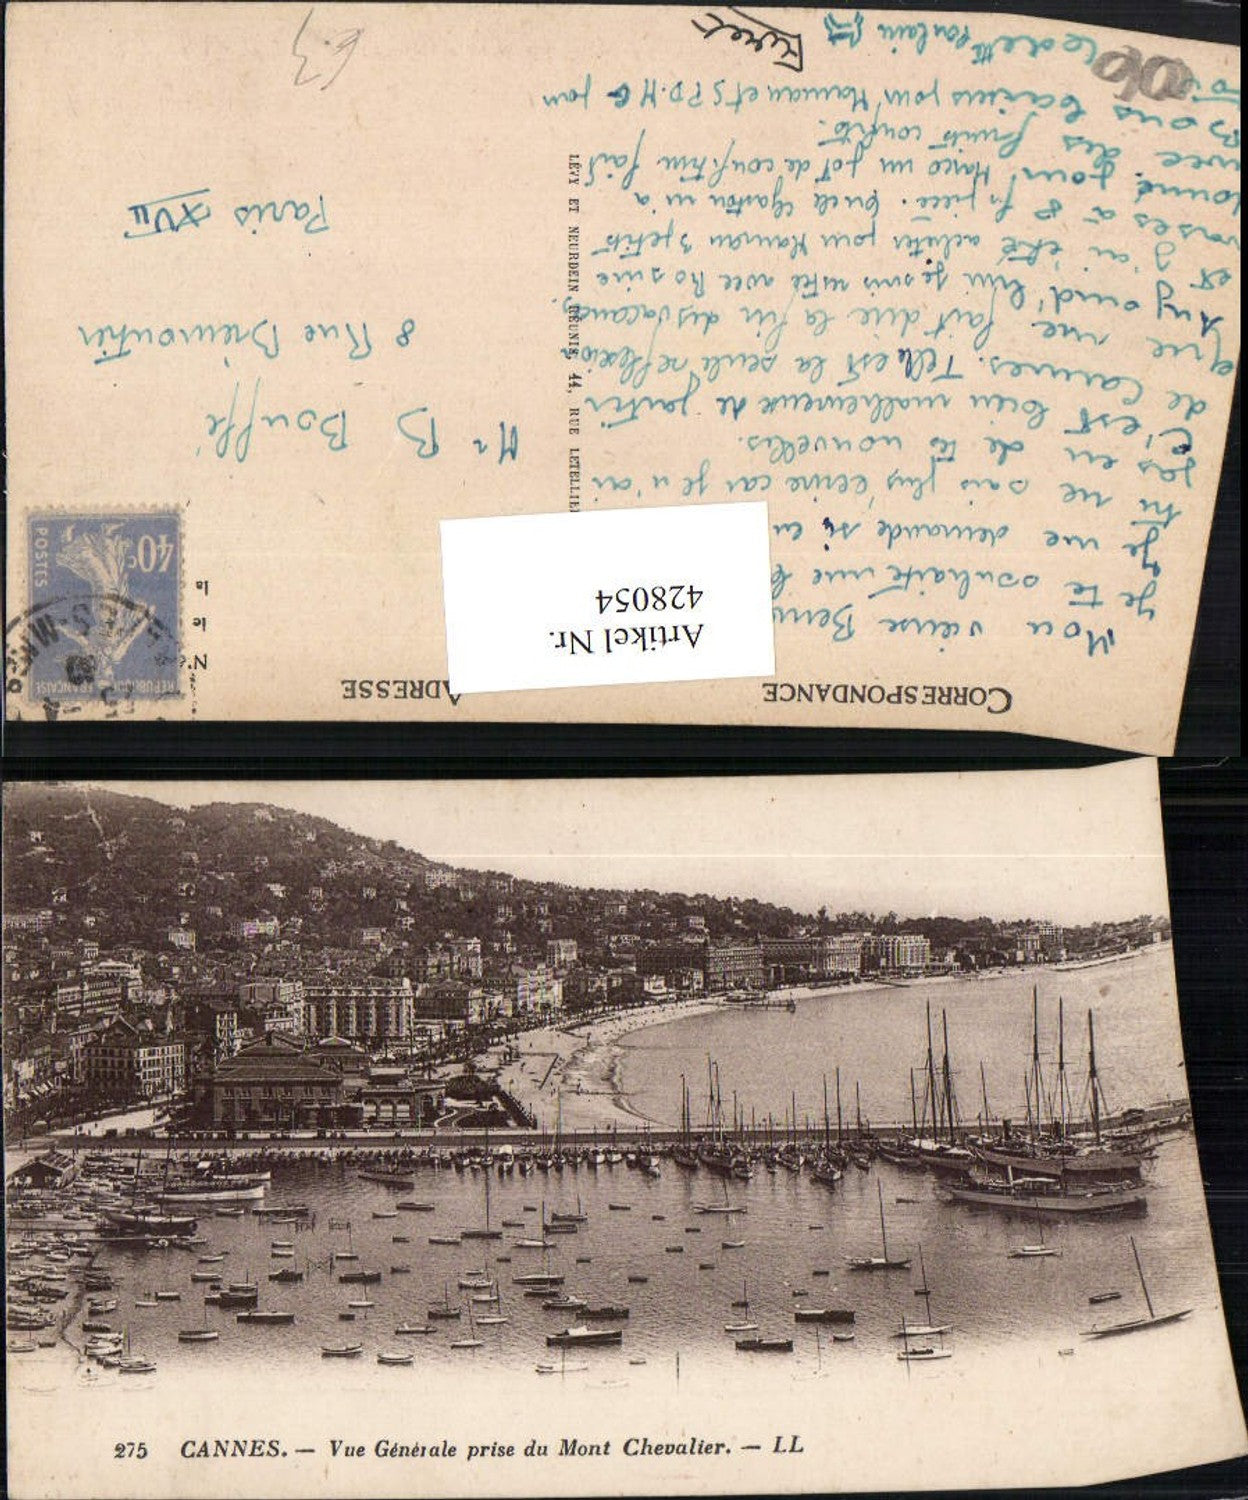 CORRESPONDANCE
ADRESSE
Artikel Nr.
428054
Mon vieux
Je te souhaite une
Je me demande si tu
tu ne sais plus écrire car je n'ai
pas eu de tes nouvelles.
C'est bien malheureux de partir
de Cannes. Telle est la seule réflexion
que me fait dire la fin des vacances.
Aujourd'hui je suis resté avec
et j'ai été acheter pour Maman 3 petits
vases à 8 frs pièce. Oncle Gaston m'a
donné pour un pot de confiture fait
avec des fruits confits.
Bons baisers pour Maman et S.P.D.M.G pour
toi
Mr B Bouffé
8 Rue Brémontier
Paris XVII
LÉVY ET NEURDEIN RÉUNIS, 44, RUE LETELLIER
40c
POSTES
RÉPUBLIQUE FRANÇAISE
N°
le
la
06
275 CANNES. — Vue Générale prise du Mont Chevalier. — LL